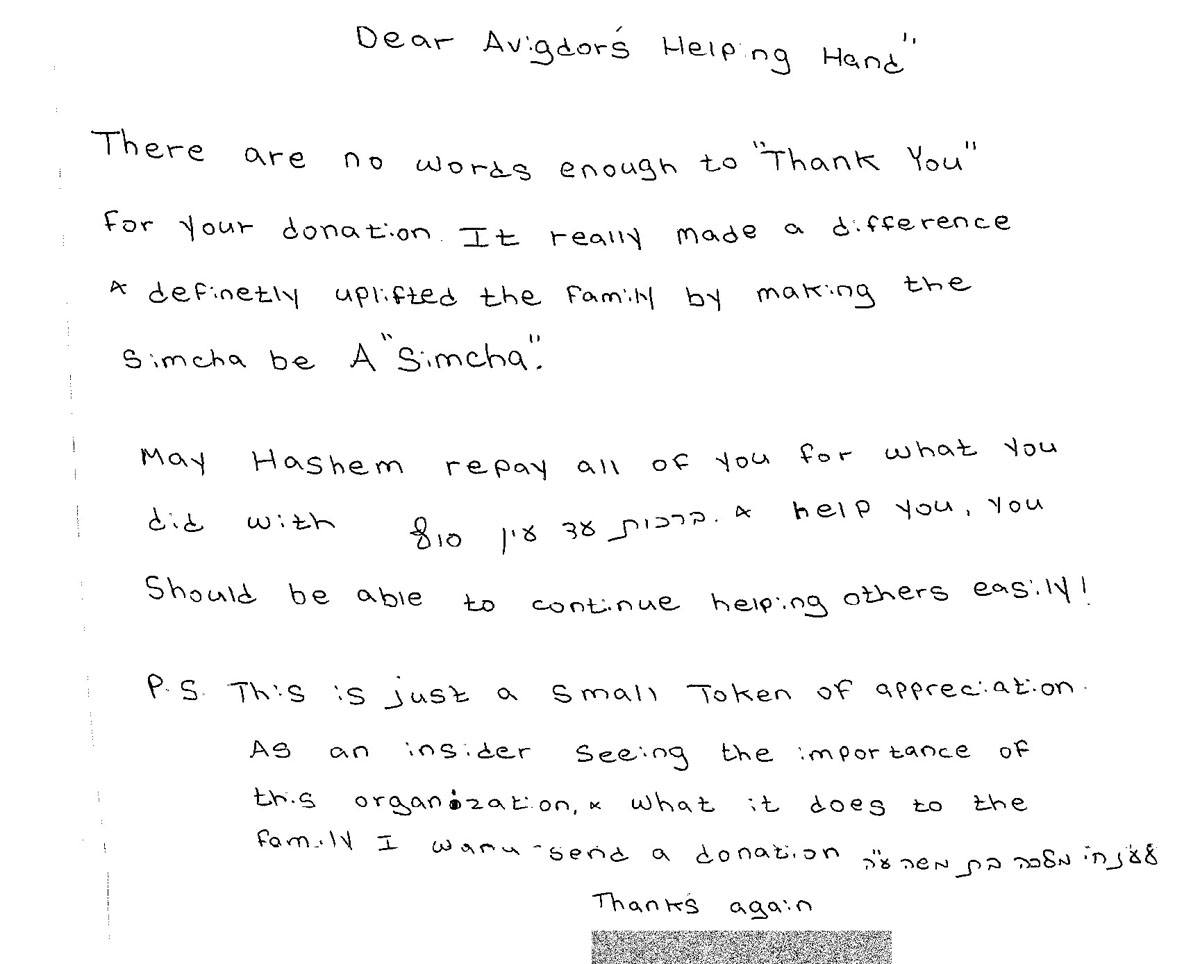 Dear Avigdor's Helping Hand"
There are no words enough to "Thank You"
for your donation. It really made a difference
& definetly uplifted the family by making the
Simcha be A "Simcha".
May Hashem repay all of you for what you
did with ברכות עד עין סוף. & help you, you
Should be able to continue helping others easily!
P.S. This is just a small Token of appreciation.
As an insider seeing the importance of
this organization, & what it does to the
family I send a donation מלכה בת משה ע"ה
Thanks again